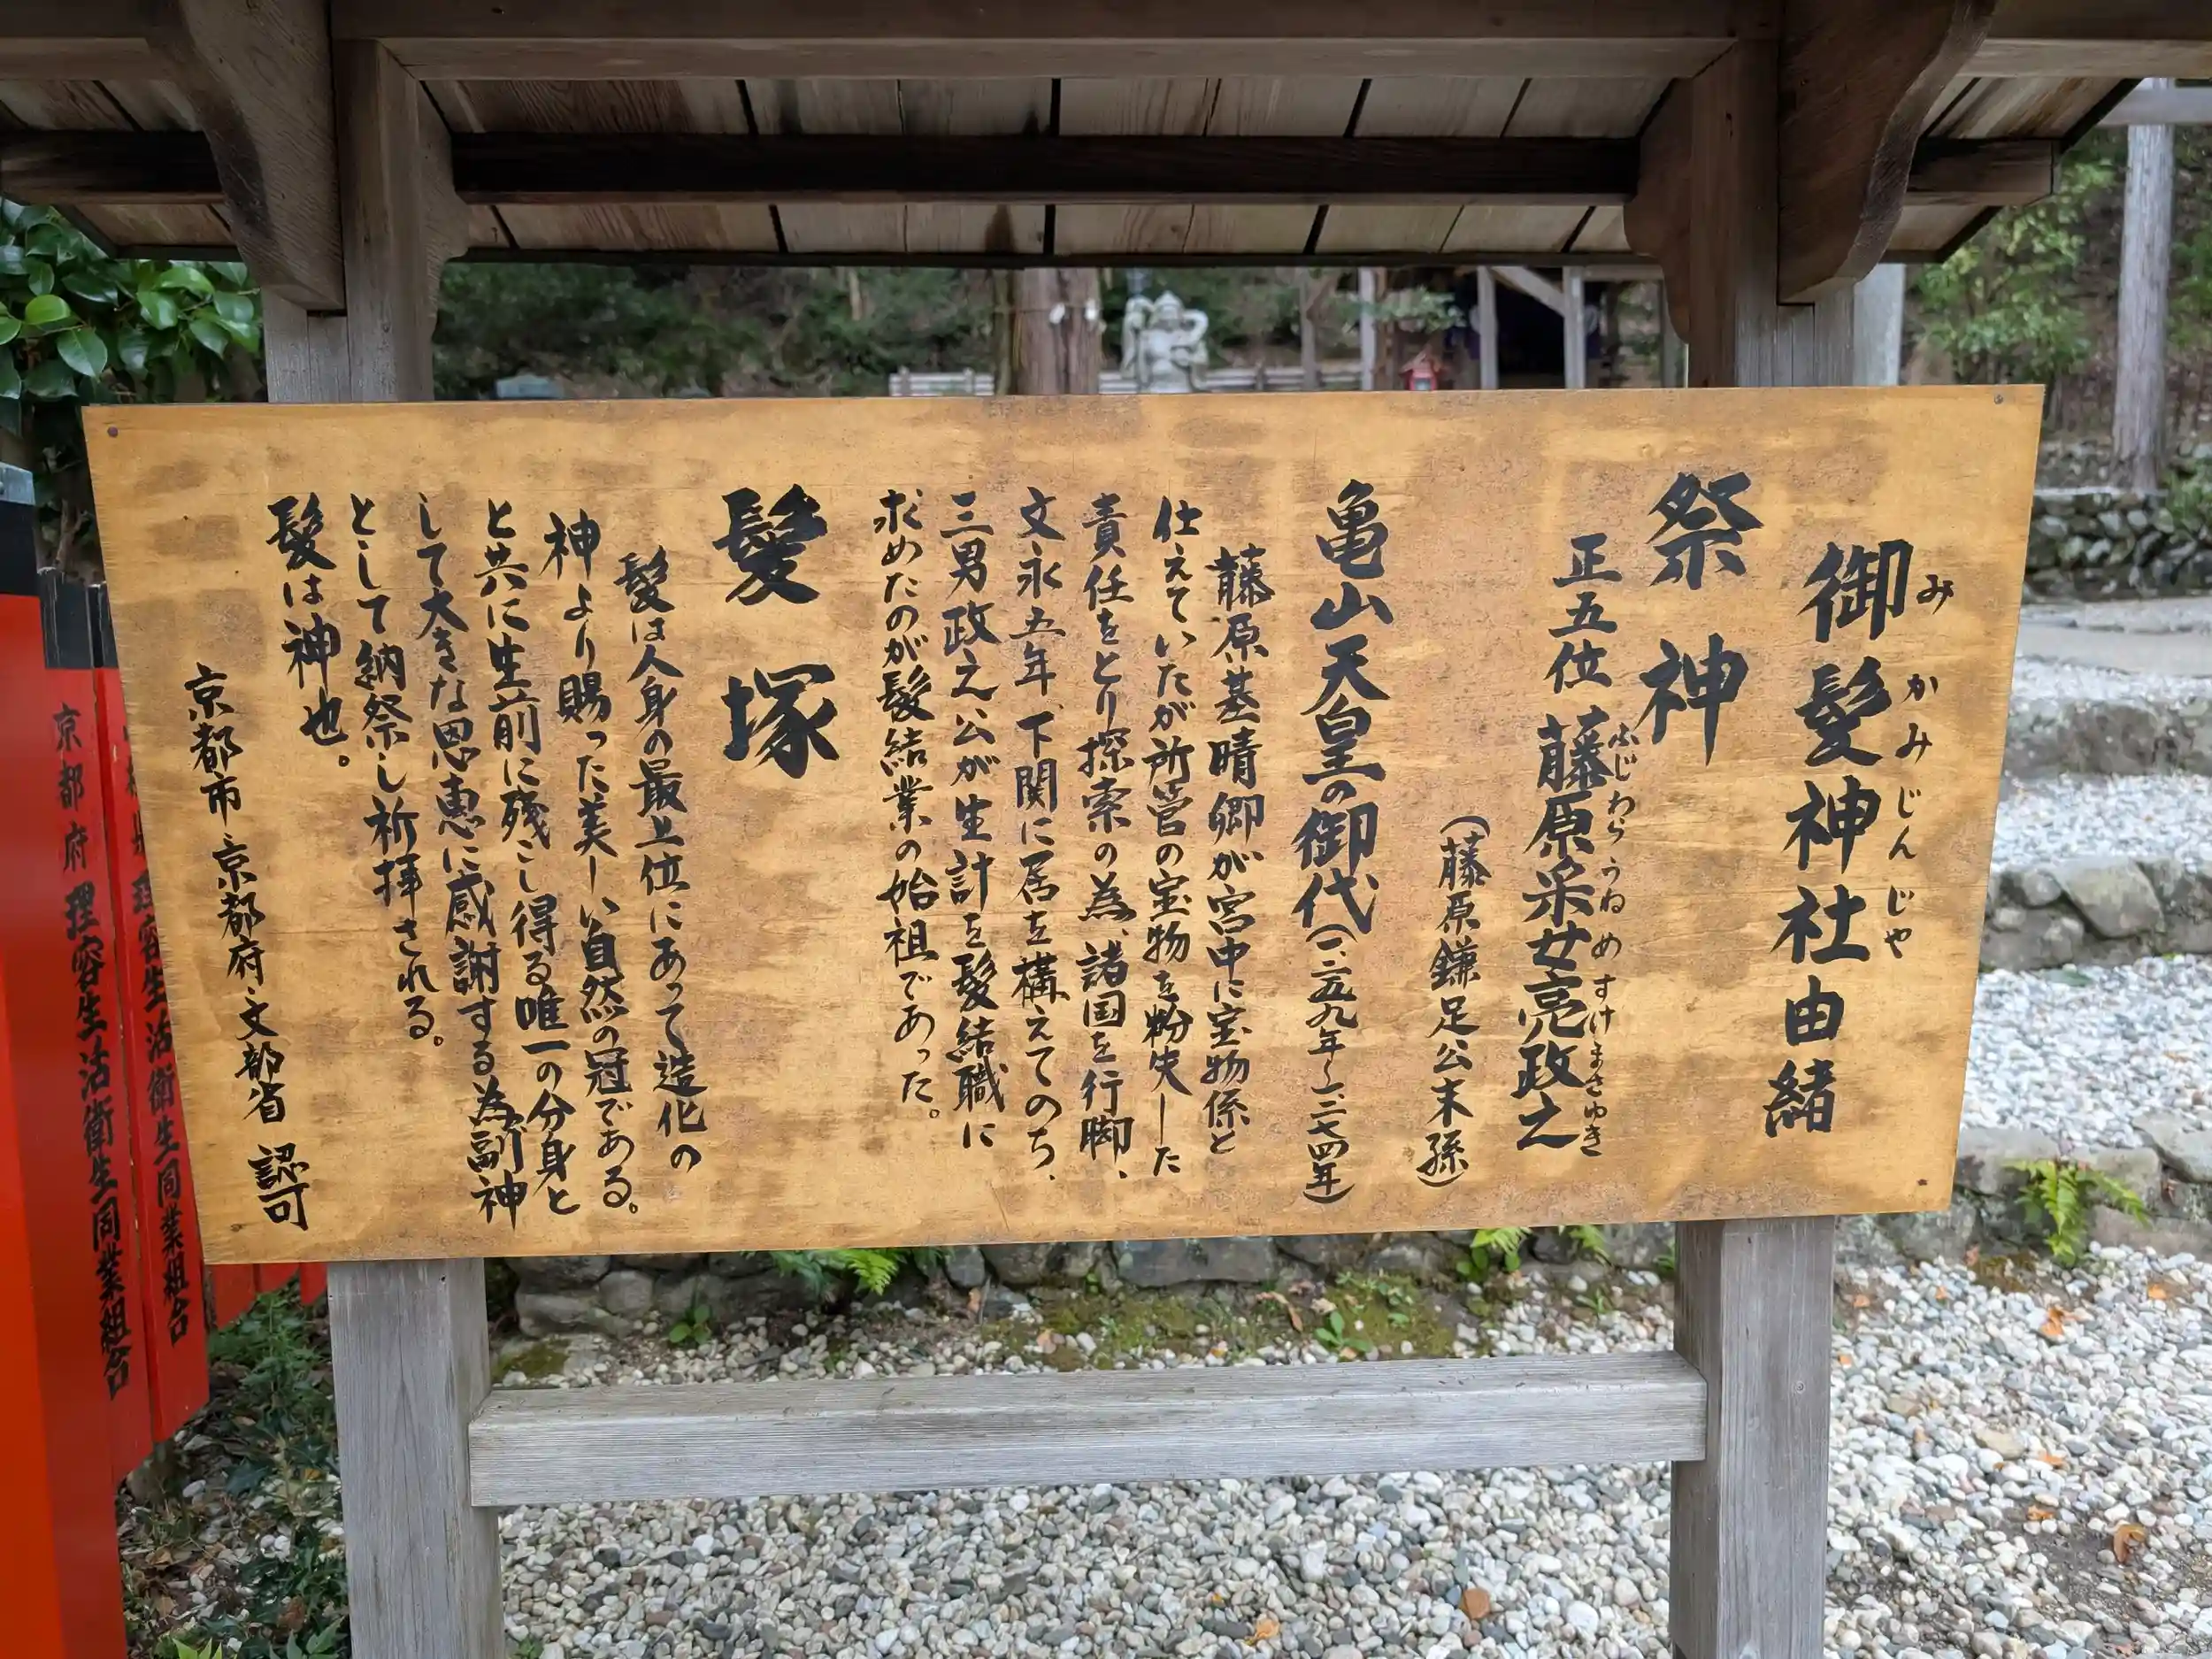 御髪神社由緒
みかみじんじゃ
祭神
正五位 藤原采女亮政之
ふじわらうねめすけまさゆき
(藤原鎌足公末孫)
亀山天皇の御代(一二五九年~一二七四年)
藤原基晴卿が宮中に宝物係と
仕えていたが所管の宝物を紛失した
責任をとり探索の為、諸国を行脚、
文永五年、下関に居を構えてのち、
三男政之公が生計を髪結職に
求めたのが髪結業の始祖であった。
髪塚
髪は人身の最上位にあって造化の
神より賜った美しい自然の冠である。
と共に生前に残こし得る唯一の分身と
して大きな恩恵に感謝する為副神
として納祭し祈拝される。
髪は神也。
京都市・京都府・文部省 認可
京都府理容生活衛生同業組合
理容生活衛生同業組合